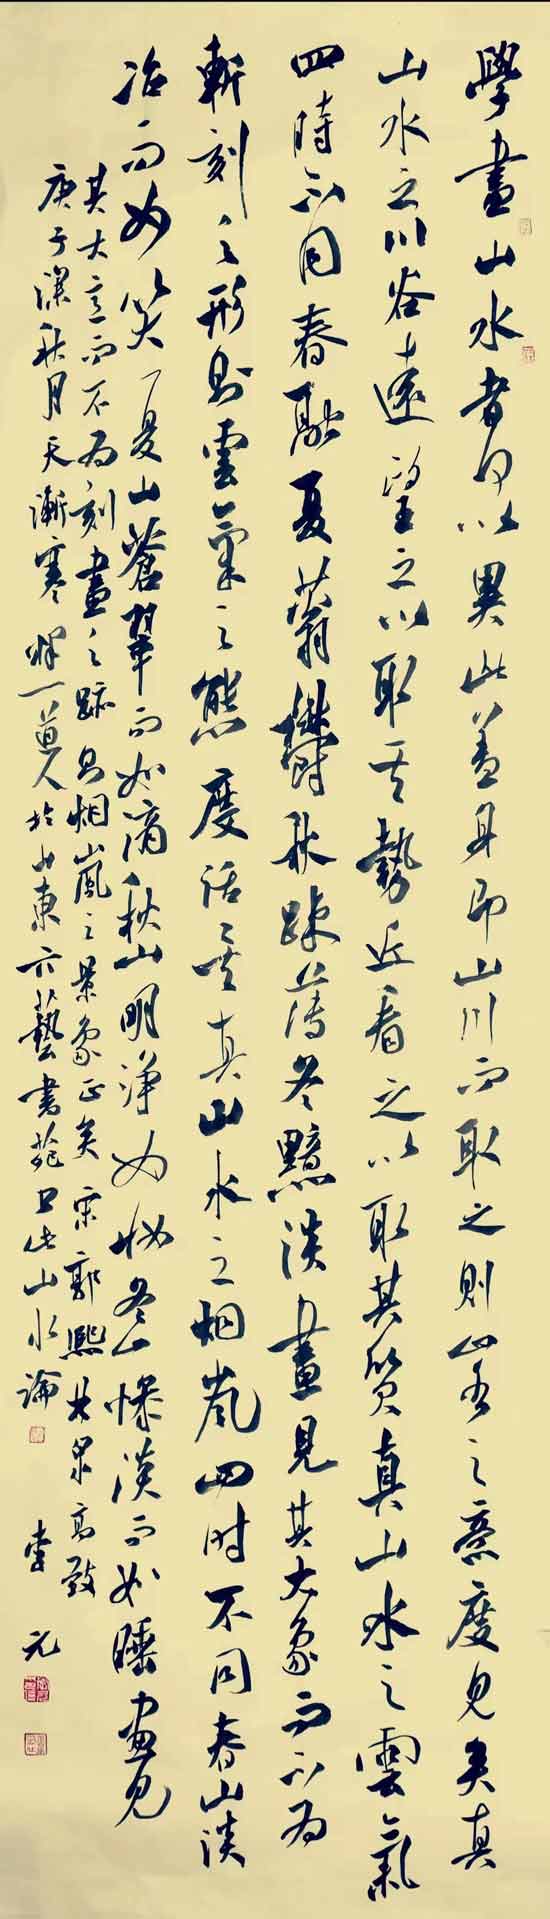 學畫山水者何以異此蓋身即山川而取之則山水之意度見矣真
山水之川谷遠望之以取其勢近看之以取其質真山水之雲氣
四時不同春融夏蓊鬱秋疎薄冬黯淡畫見其大象而不為
斬刻之形則雲氣之態度活矣真山水之烟嵐四时不同春山淡
冶而如笑夏山蒼翠而如滴秋山明淨如妝冬山慘淡而如睡画見
其大意而不為刻畫之跡則烟嵐之景象正矣宋郭熙林泉高致
庚子深秋月天漸寒一草人於山東六藝書苑山水論
李元